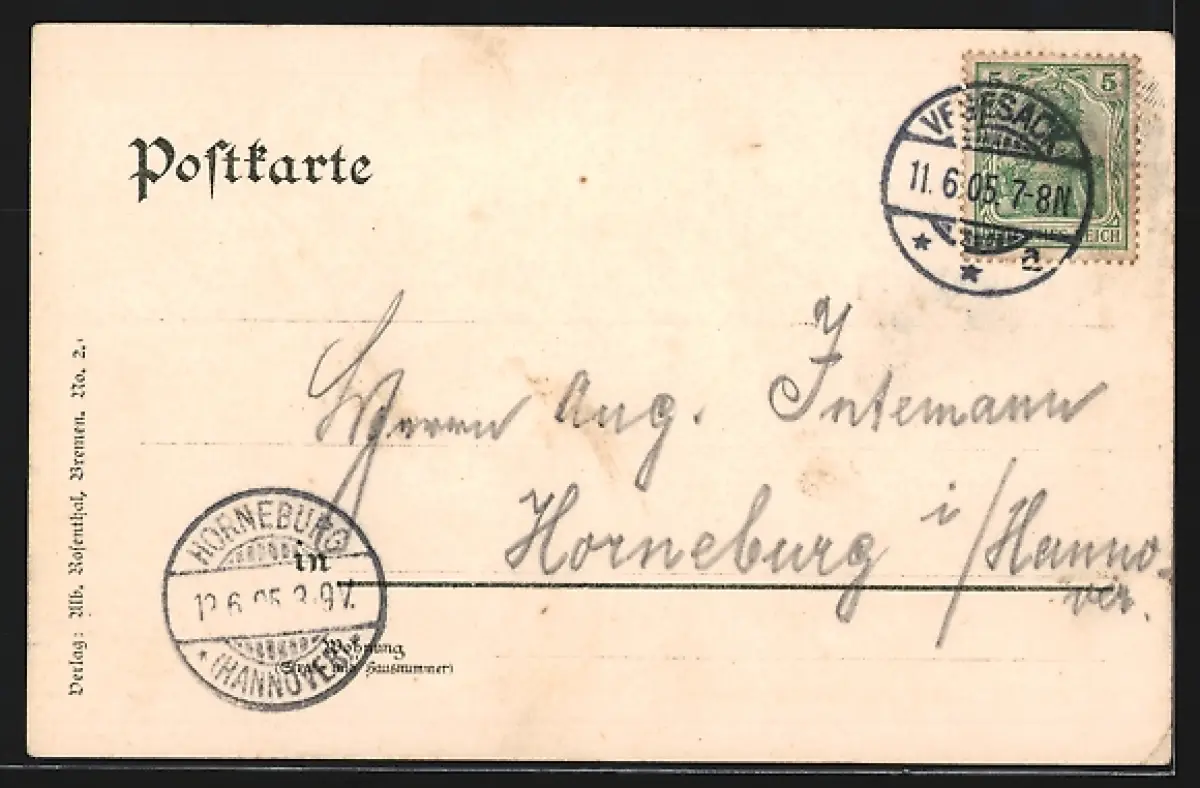 5 5
VEGESACK
11. 6. 05. 7-8N
* * a
DEUTSCHES REICH
Postkarte
Herrn Aug. Intemann
Horneburg i/Hanno-
ver.
in
HORNEBURG
12. 6. 05
* (HANNOVER) *
Wohnung
(Straße und Hausnummer)
Verlag: Alb. Rosenthal, Bremen. No. 2.